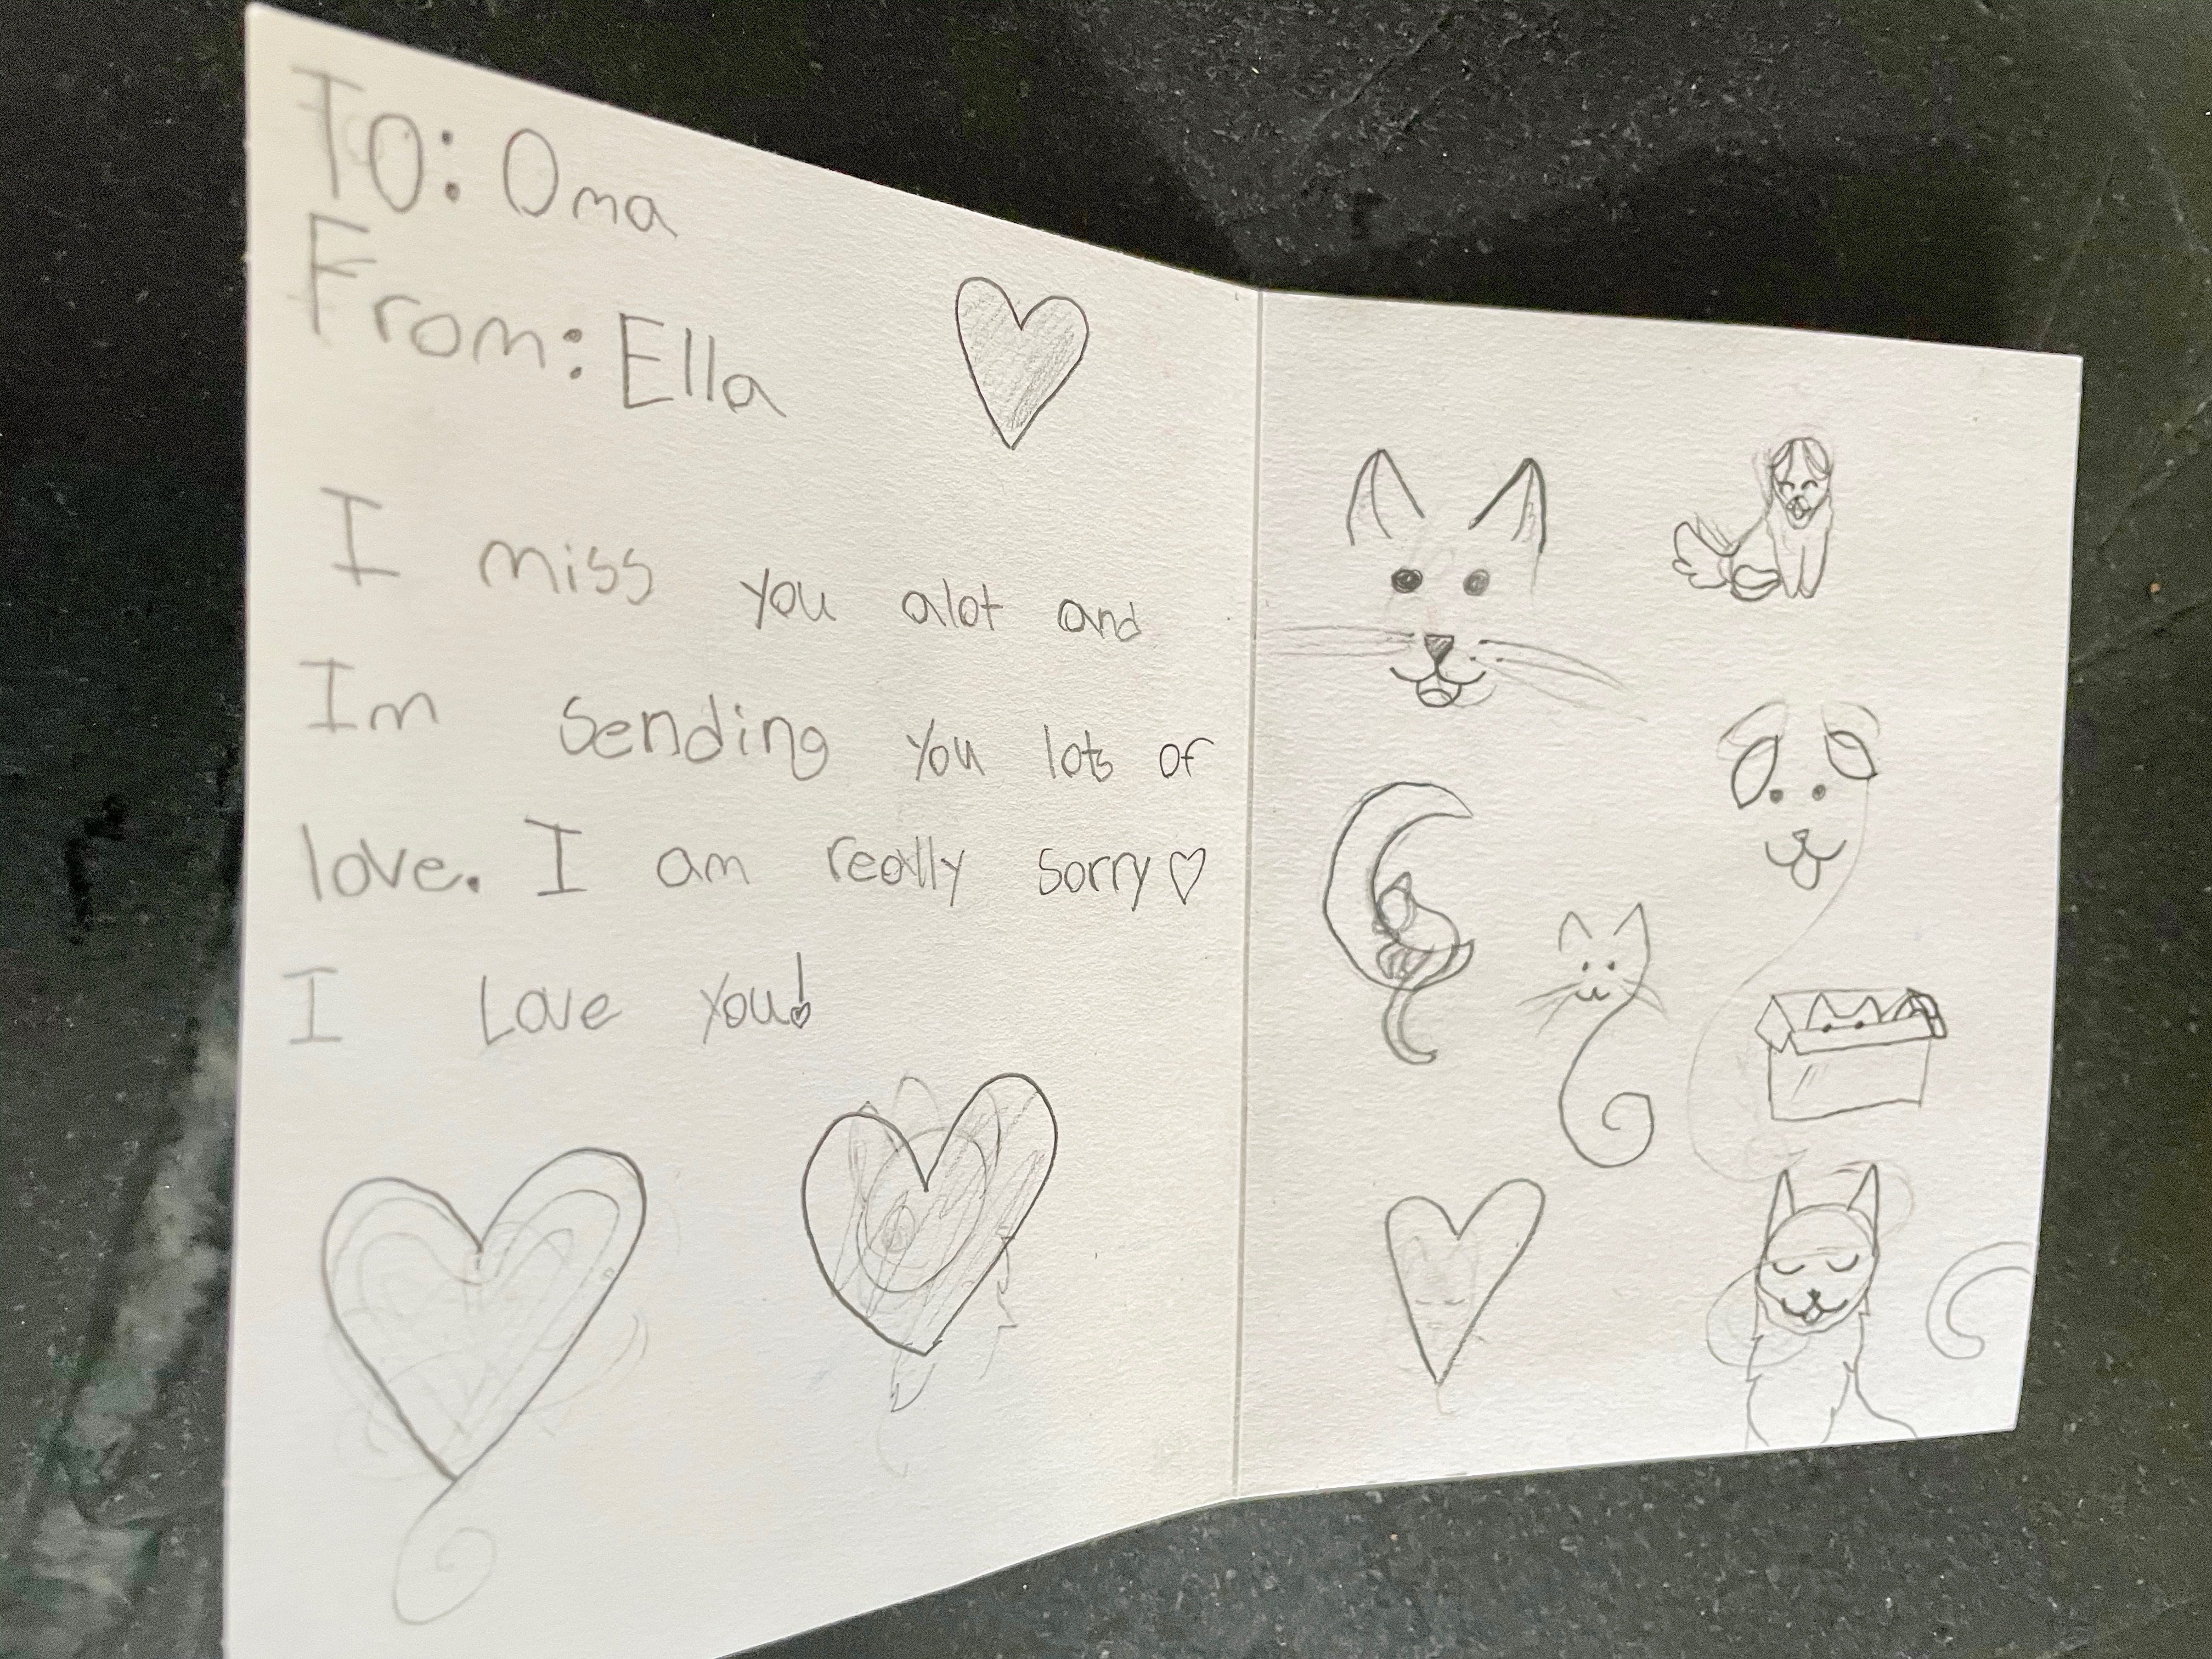 To: Oma
From: Ella
I miss you alot and
Im sending you lots of
love. I am really sorry ♡
I Love you!